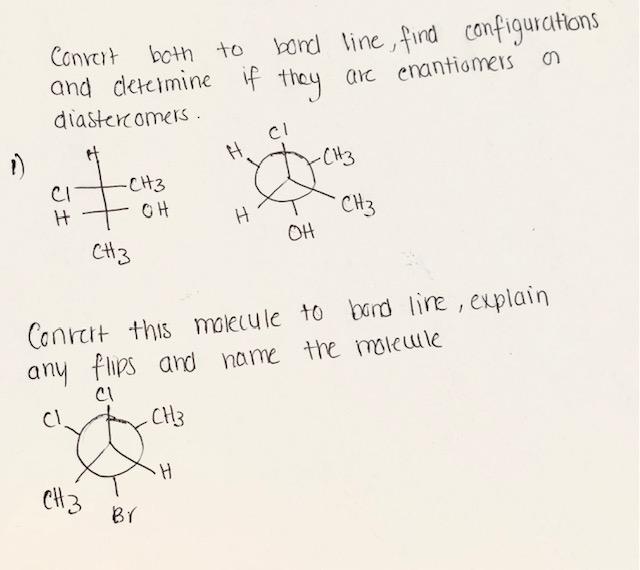 Convert both to bond line, find configurations
and determine if they are enantiomers or
diastereomers.
1)
H
Cl CH3
H OH
CH3
Cl
H CH3
H CH3
OH
Convert this molecule to bond line, explain
any flips and name the molecule
Cl
Cl CH3
H
CH3
Br